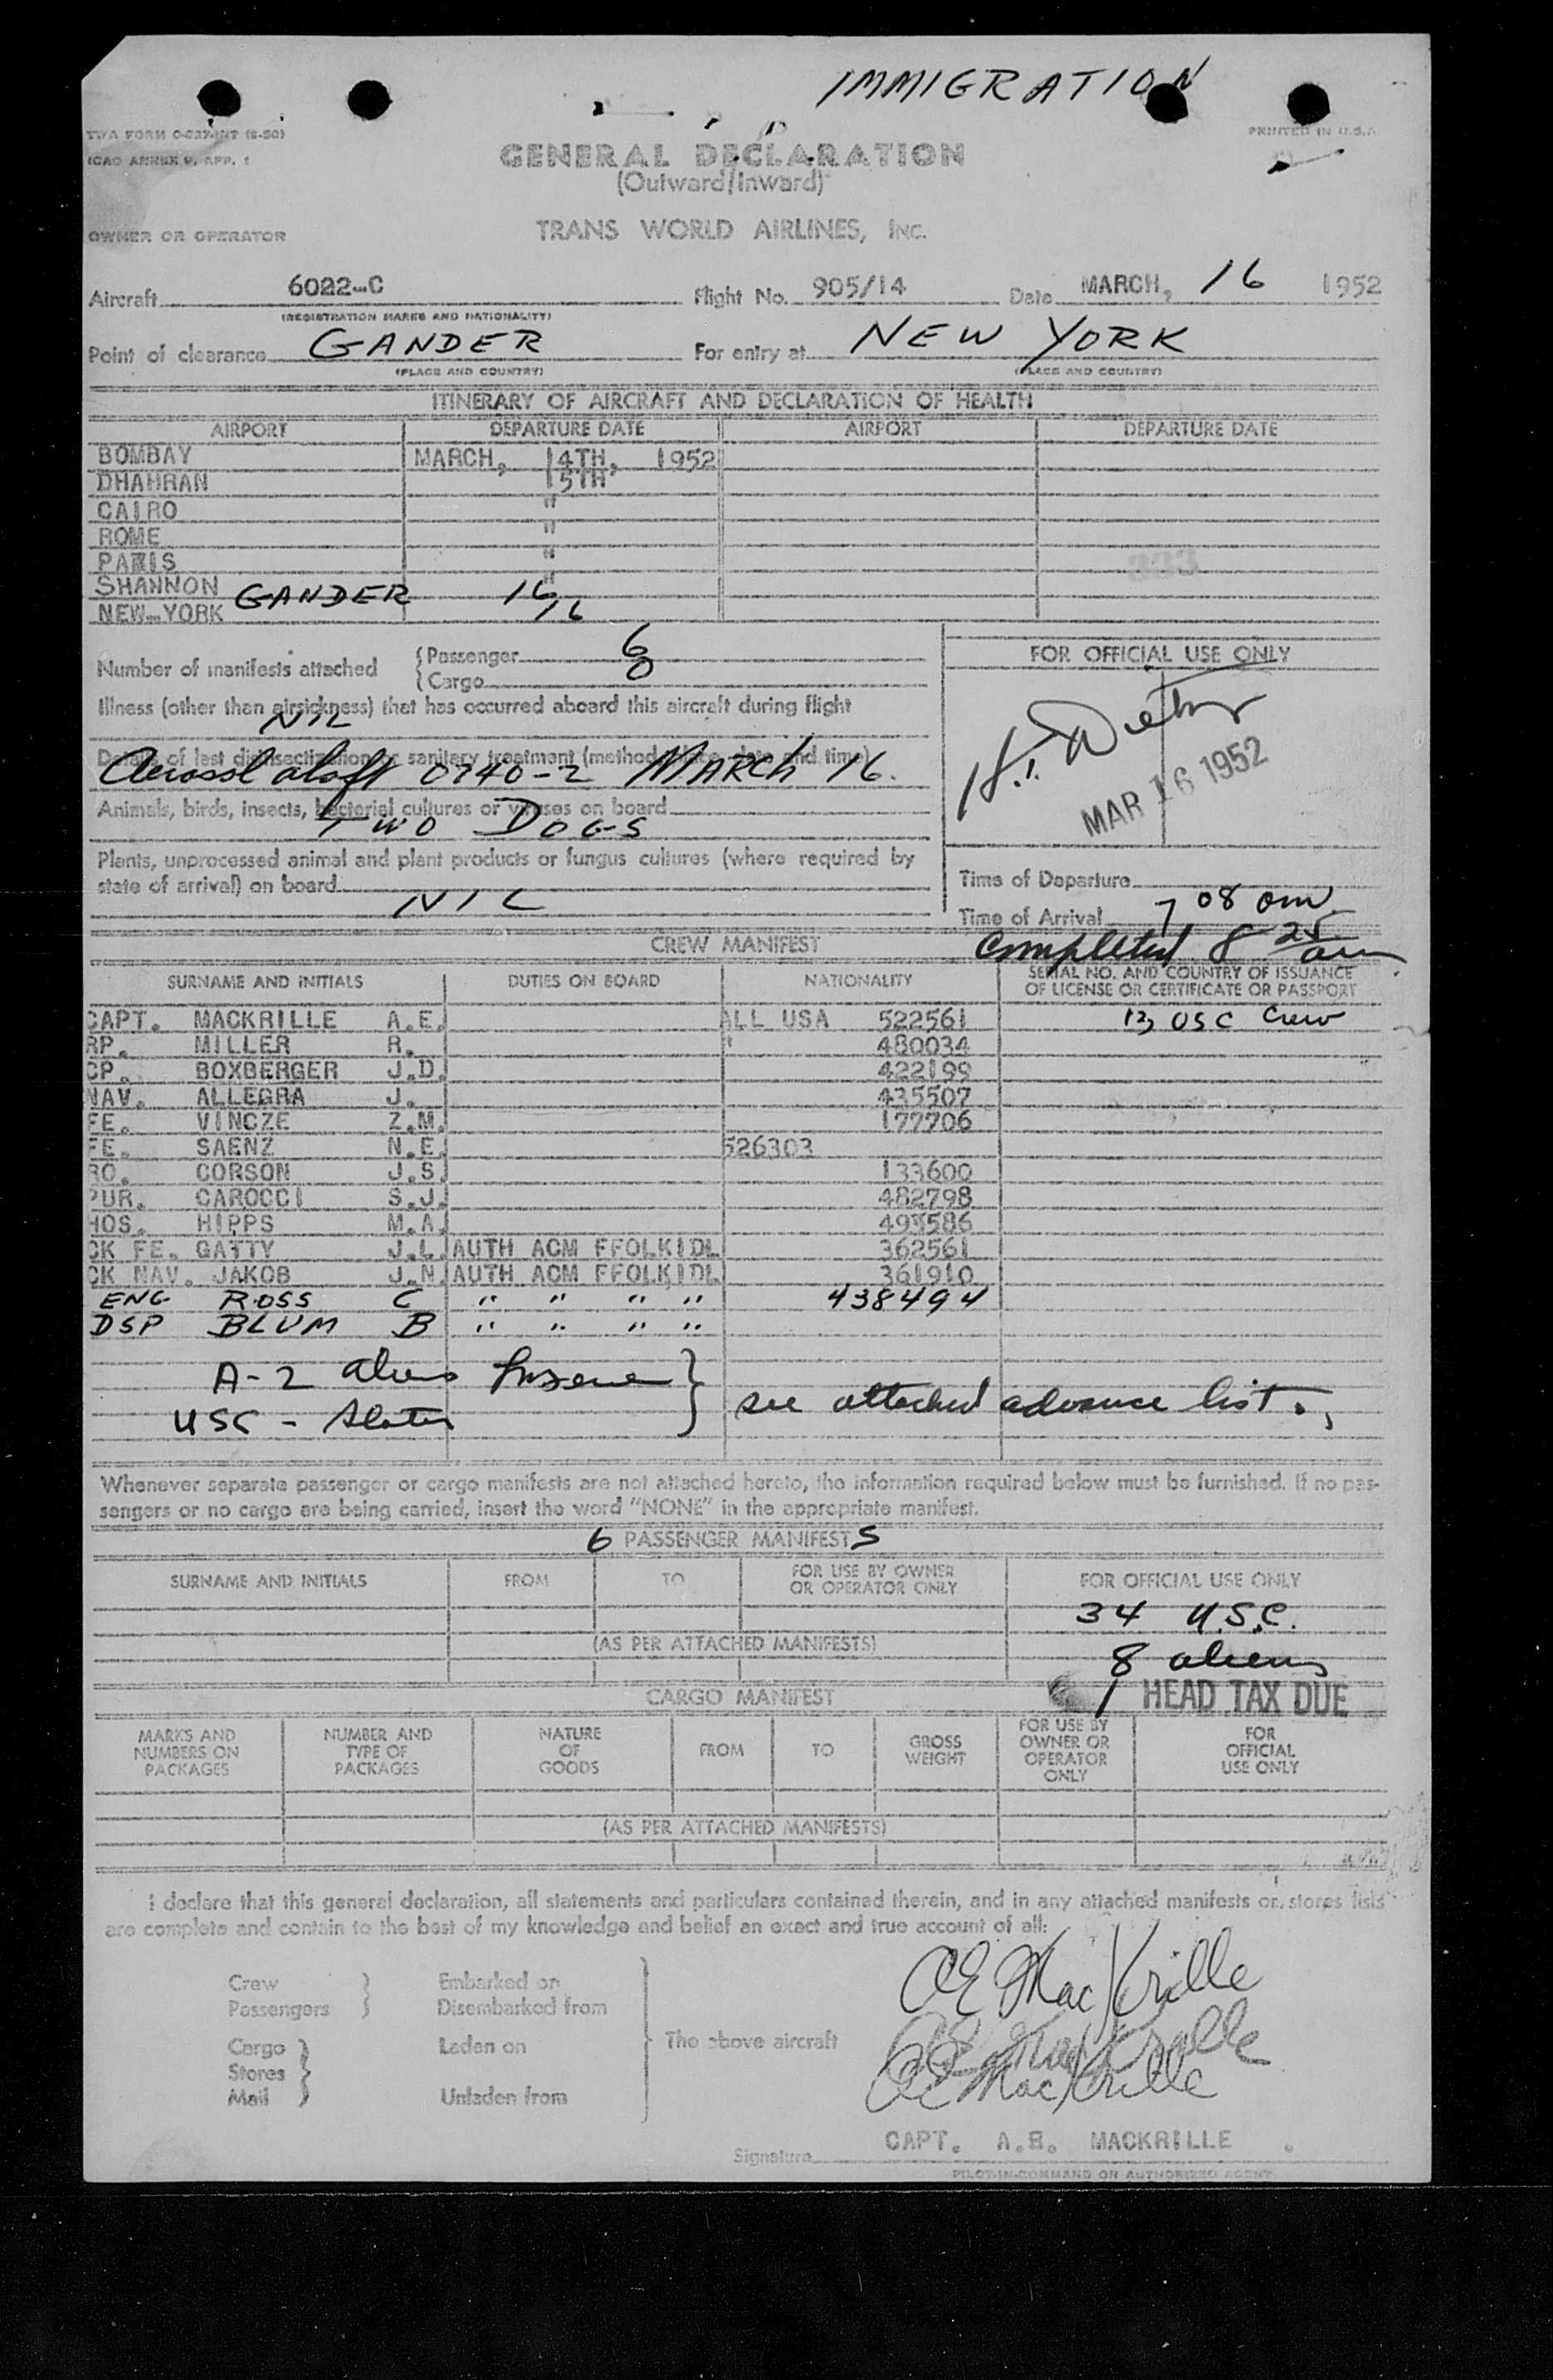 IMMIGRATION
TWA FORM O-C37-INT (8-50)
PRINTED IN U.S.A
ICAO ANNEX 9, APP. 1
GENERAL DECLARATION
(Outward/Inward)
OWNER OR OPERATOR TRANS WORLD AIRLINES, INC.
Aircraft 6022-C Flight No. 905/14 Date MARCH, 16 1952
(REGISTRATION MARKS AND NATIONALITY)
Point of clearance GANDER For entry at NEW YORK
(PLACE AND COUNTRY) (PLACE AND COUNTRY)
ITINERARY OF AIRCRAFT AND DECLARATION OF HEALTH
AIRPORT DEPARTURE DATE AIRPORT DEPARTURE DATE
BOMBAY MARCH, 14TH, 1952
DHAHRAN 15TH
CAIRO "
ROME "
PARIS "
SHANNON "
GANDER 16
NEW-YORK 16
333
Number of manifests attached { Passenger 6
{ Cargo 0
Illness (other than airsickness) that has occurred aboard this aircraft during flight
NIL
Details of last disinsectization or sanitary treatment (method, place, date and time)
Aerosol aloft 0740-2 MARCH 16.
Animals, birds, insects, bacterial cultures or viruses on board
TWO DOGS
Plants, unprocessed animal and plant products or fungus cultures (where required by
state of arrival) on board
NIL
FOR OFFICIAL USE ONLY
MAR 16 1952
Time of Departure
Time of Arrival 7 08 am
Completed 8 25 am
CREW MANIFEST
SURNAME AND INITIALS DUTIES ON BOARD NATIONALITY SERIAL NO. AND COUNTRY OF ISSUANCE
OF LICENSE OR CERTIFICATE OR PASSPORT
CAPT. MACKRILLE A.E. ALL USA 522561 13 USC Crew
RP. MILLER R. " 480034
CP. BOXBERGER J.D. 422199
NAV. ALLEGRA J. 435507
FE. VINCZE Z.M. 177706
FE. SAENZ N.E. 526303
RO. CORSON J.S. 133600
PUR. CAROCCI S.J. 482798
HOS. HIPPS M.A. 493586
CK FE. GATTY J.L. AUTH ACM FFOLKIDL 362561
CK NAV. JAKOB J.N. AUTH ACM FFOLKIDL 361910
ENG ROSS C " " " " 438494
DSP BLUM B " " " "
A-2 aliens }
USC - } see attached advance list.
Whenever separate passenger or cargo manifests are not attached hereto, the information required below must be furnished. If no pas-
sengers or no cargo are being carried, insert the word "NONE" in the appropriate manifest.
6 PASSENGER MANIFESTS
SURNAME AND INITIALS FROM TO FOR USE BY OWNER
OR OPERATOR ONLY FOR OFFICIAL USE ONLY
34 U.S.C.
(AS PER ATTACHED MANIFESTS)
8 aliens
CARGO MANIFEST
1 HEAD TAX DUE
MARKS AND
NUMBERS ON
PACKAGES
NUMBER AND
TYPE OF
PACKAGES
NATURE
OF
GOODS
FROM
TO
GROSS
WEIGHT
FOR USE BY
OWNER OR
OPERATOR
ONLY
FOR
OFFICIAL
USE ONLY
(AS PER ATTACHED MANIFESTS)
I declare that this general declaration, all statements and particulars contained therein, and in any attached manifests or stores lists
are complete and contain to the best of my knowledge and belief an exact and true account of all:
Crew } Embarked on
Passengers } Disembarked from
Cargo } Laden on
Stores }
Mail } Unladen from
The above aircraft
AE MacKrille
AE MacKrille
AE MacKrille
Signature CAPT. A.E. MACKRILLE .
PILOT-IN-COMMAND OR AUTHORIZED AGENT